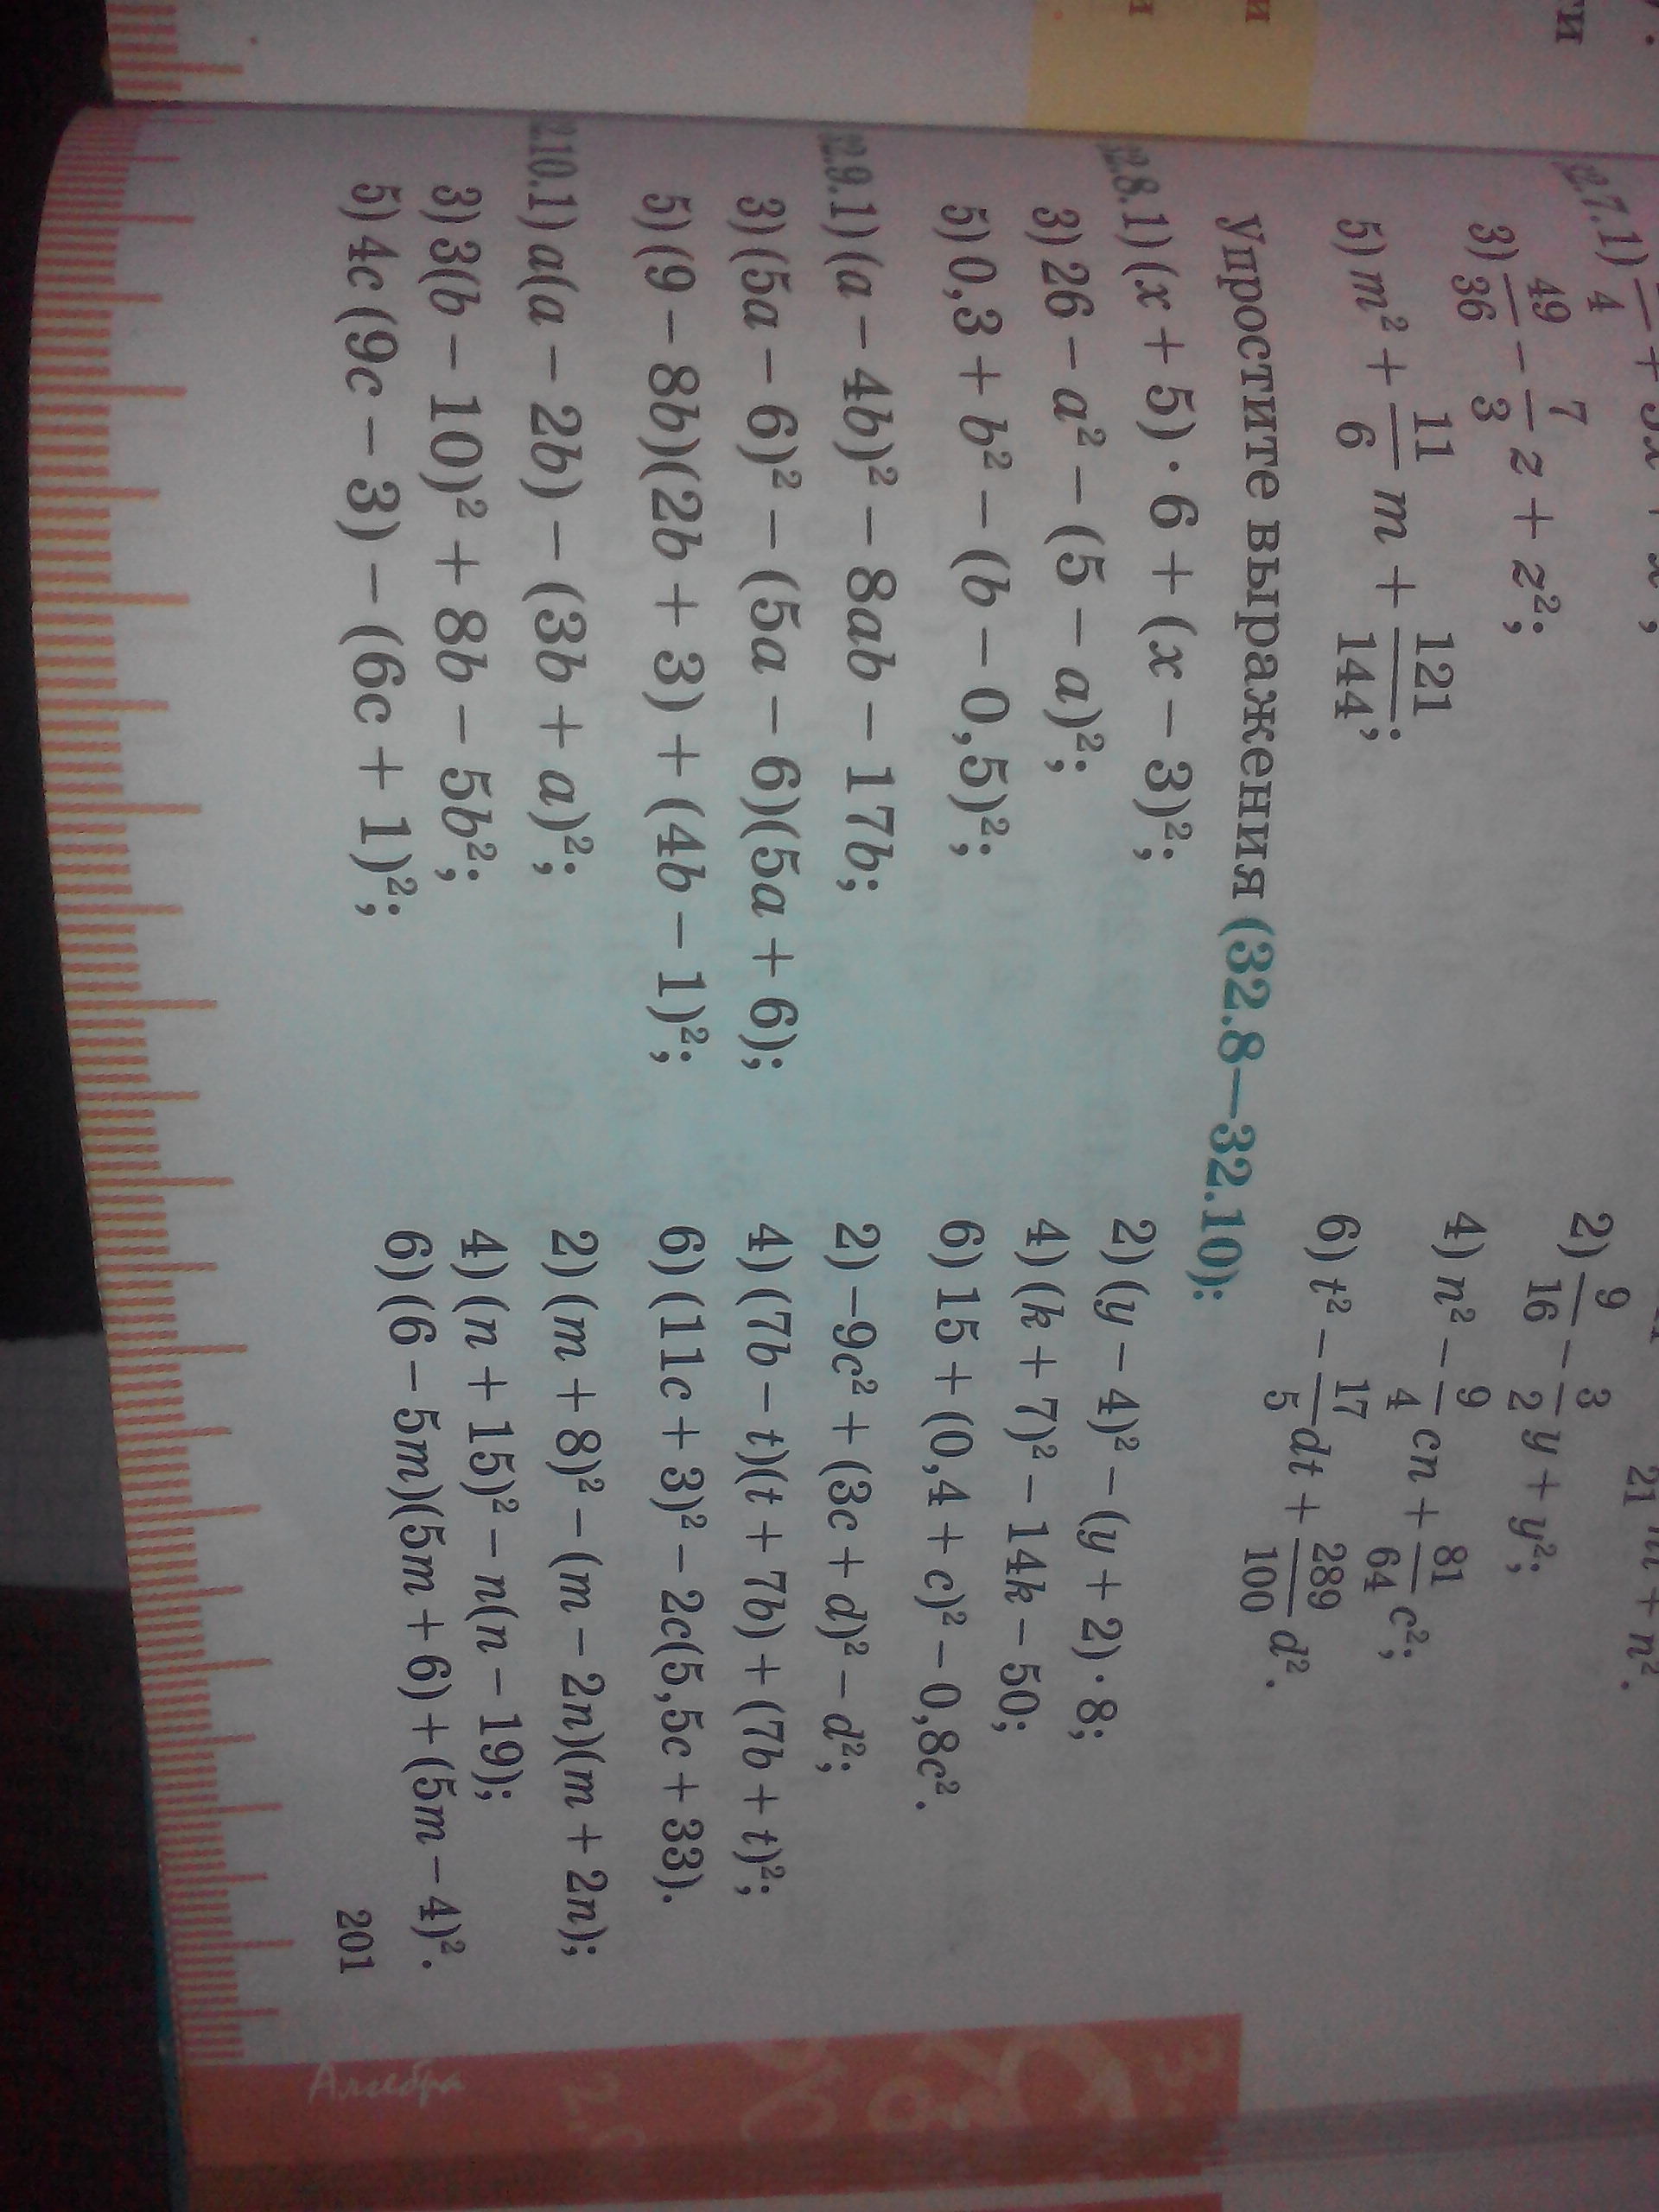 32.7. 1)
2) 9/16 − 3/2 y + y²;
3) 49/36 − 7/3 z + z²;
4) n² − 9/4 cn + 81/64 c²;
5) m² + 11/6 m + 121/144;
6) t² − 17/5 dt + 289/100 d².
Упростите выражения (32.8—32.10):
32.8. 1) (x + 5) · 6 + (x − 3)²;
2) (y − 4)² − (y + 2) · 8;
3) 26 − a² − (5 − a)²;
4) (k + 7)² − 14k − 50;
5) 0,3 + b² − (b − 0,5)²;
6) 15 + (0,4 + c)² − 0,8c².
32.9. 1) (a − 4b)² − 8ab − 17b;
2) −9c² + (3c + d)² − d²;
3) (5a − 6)² − (5a − 6)(5a + 6);
4) (7b − t)(t + 7b) + (7b + t)²;
5) (9 − 8b)(2b + 3) + (4b − 1)²;
6) (11c + 3)² − 2c(5,5c + 33).
32.10. 1) a(a − 2b) − (3b + a)²;
2) (m + 8)² − (m − 2n)(m + 2n);
3) 3(b − 10)² + 8b − 5b²;
4) (n + 15)² − n(n − 19);
5) 4c (9c − 3) − (6c + 1)²;
6) (6 − 5m)(5m + 6) + (5m − 4)².
201
Алгебра